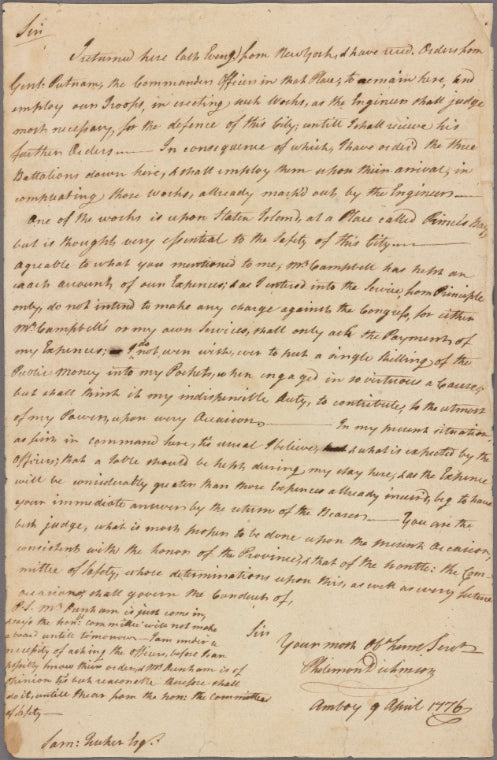 Sir
I returned here last Even.g from New York, & have recd. Orders from
Genl. Putnam, the Commander Officer in that Place, to remain here, and
employ our Troops, in erecting such Works, as the Engineer shall judge
most necessary, for the defence of this City, untill I shall recieve his
further Orders — In consequence of which, I have order'd the three
Battalions down here, & shall employ them upon their arrival, in
compleating those Works, allready mark'd out, by the Engineers —
One of the works is upon Staten Island, at a Place called
but is thought very essential to the Safety of this City —
Agreable to what you mentioned to me, Mr. Campbell has kept an
exact account, of our Expences; & as I entered into the Service, from Principle
only, do not intend to make any charge against the Congress, for either
Mr. Campbell's or my own Services, shall only ask the Payment of
my Expences; I do not, even wish, ever to put a single shilling of the
Public Money into my Pocket, when engaged in so virtuous a Cause,
but shall think it my indispensible duty, to contribute, to the utmost
of my Power, upon every Occasion — In my present situation
as first in command here, tis usual I believe, & what is expected by the
Officers, that a table should be kept, during my stay here, & as the Expence
will be considerably greater than those Expences allready incur'd, beg to have
your immediate answer by the return of the Bearer — You are the
best judge, what is most proper to be done upon the present Occasion,
consistent with the honor of the Province, & that of the honble: the Com-
mittee of Safety, whose determinations upon this, as well as every future
occasion, shall govern the Conduct of,
Sir
Your most Obt. hume Servt.
Philemon Dickinson
Amboy 9 April 1776
P.S. Mr. Dunham is just come in,
says the hon: committee will not make
a board untill tomorrow — I am under a
necessity of asking the Officers, before I can
possibly know their orders, & Mr. Dunham is of
opinion tis but reasonable therefore shall
do it, untill I hear from the hon: the Committee
of Safety —
Sam: Tucker Esqr.